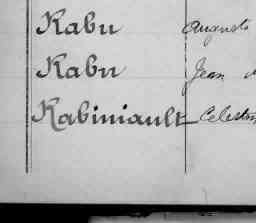 Rabu Auguste
Rabu Jean
Rabiniault Celestin